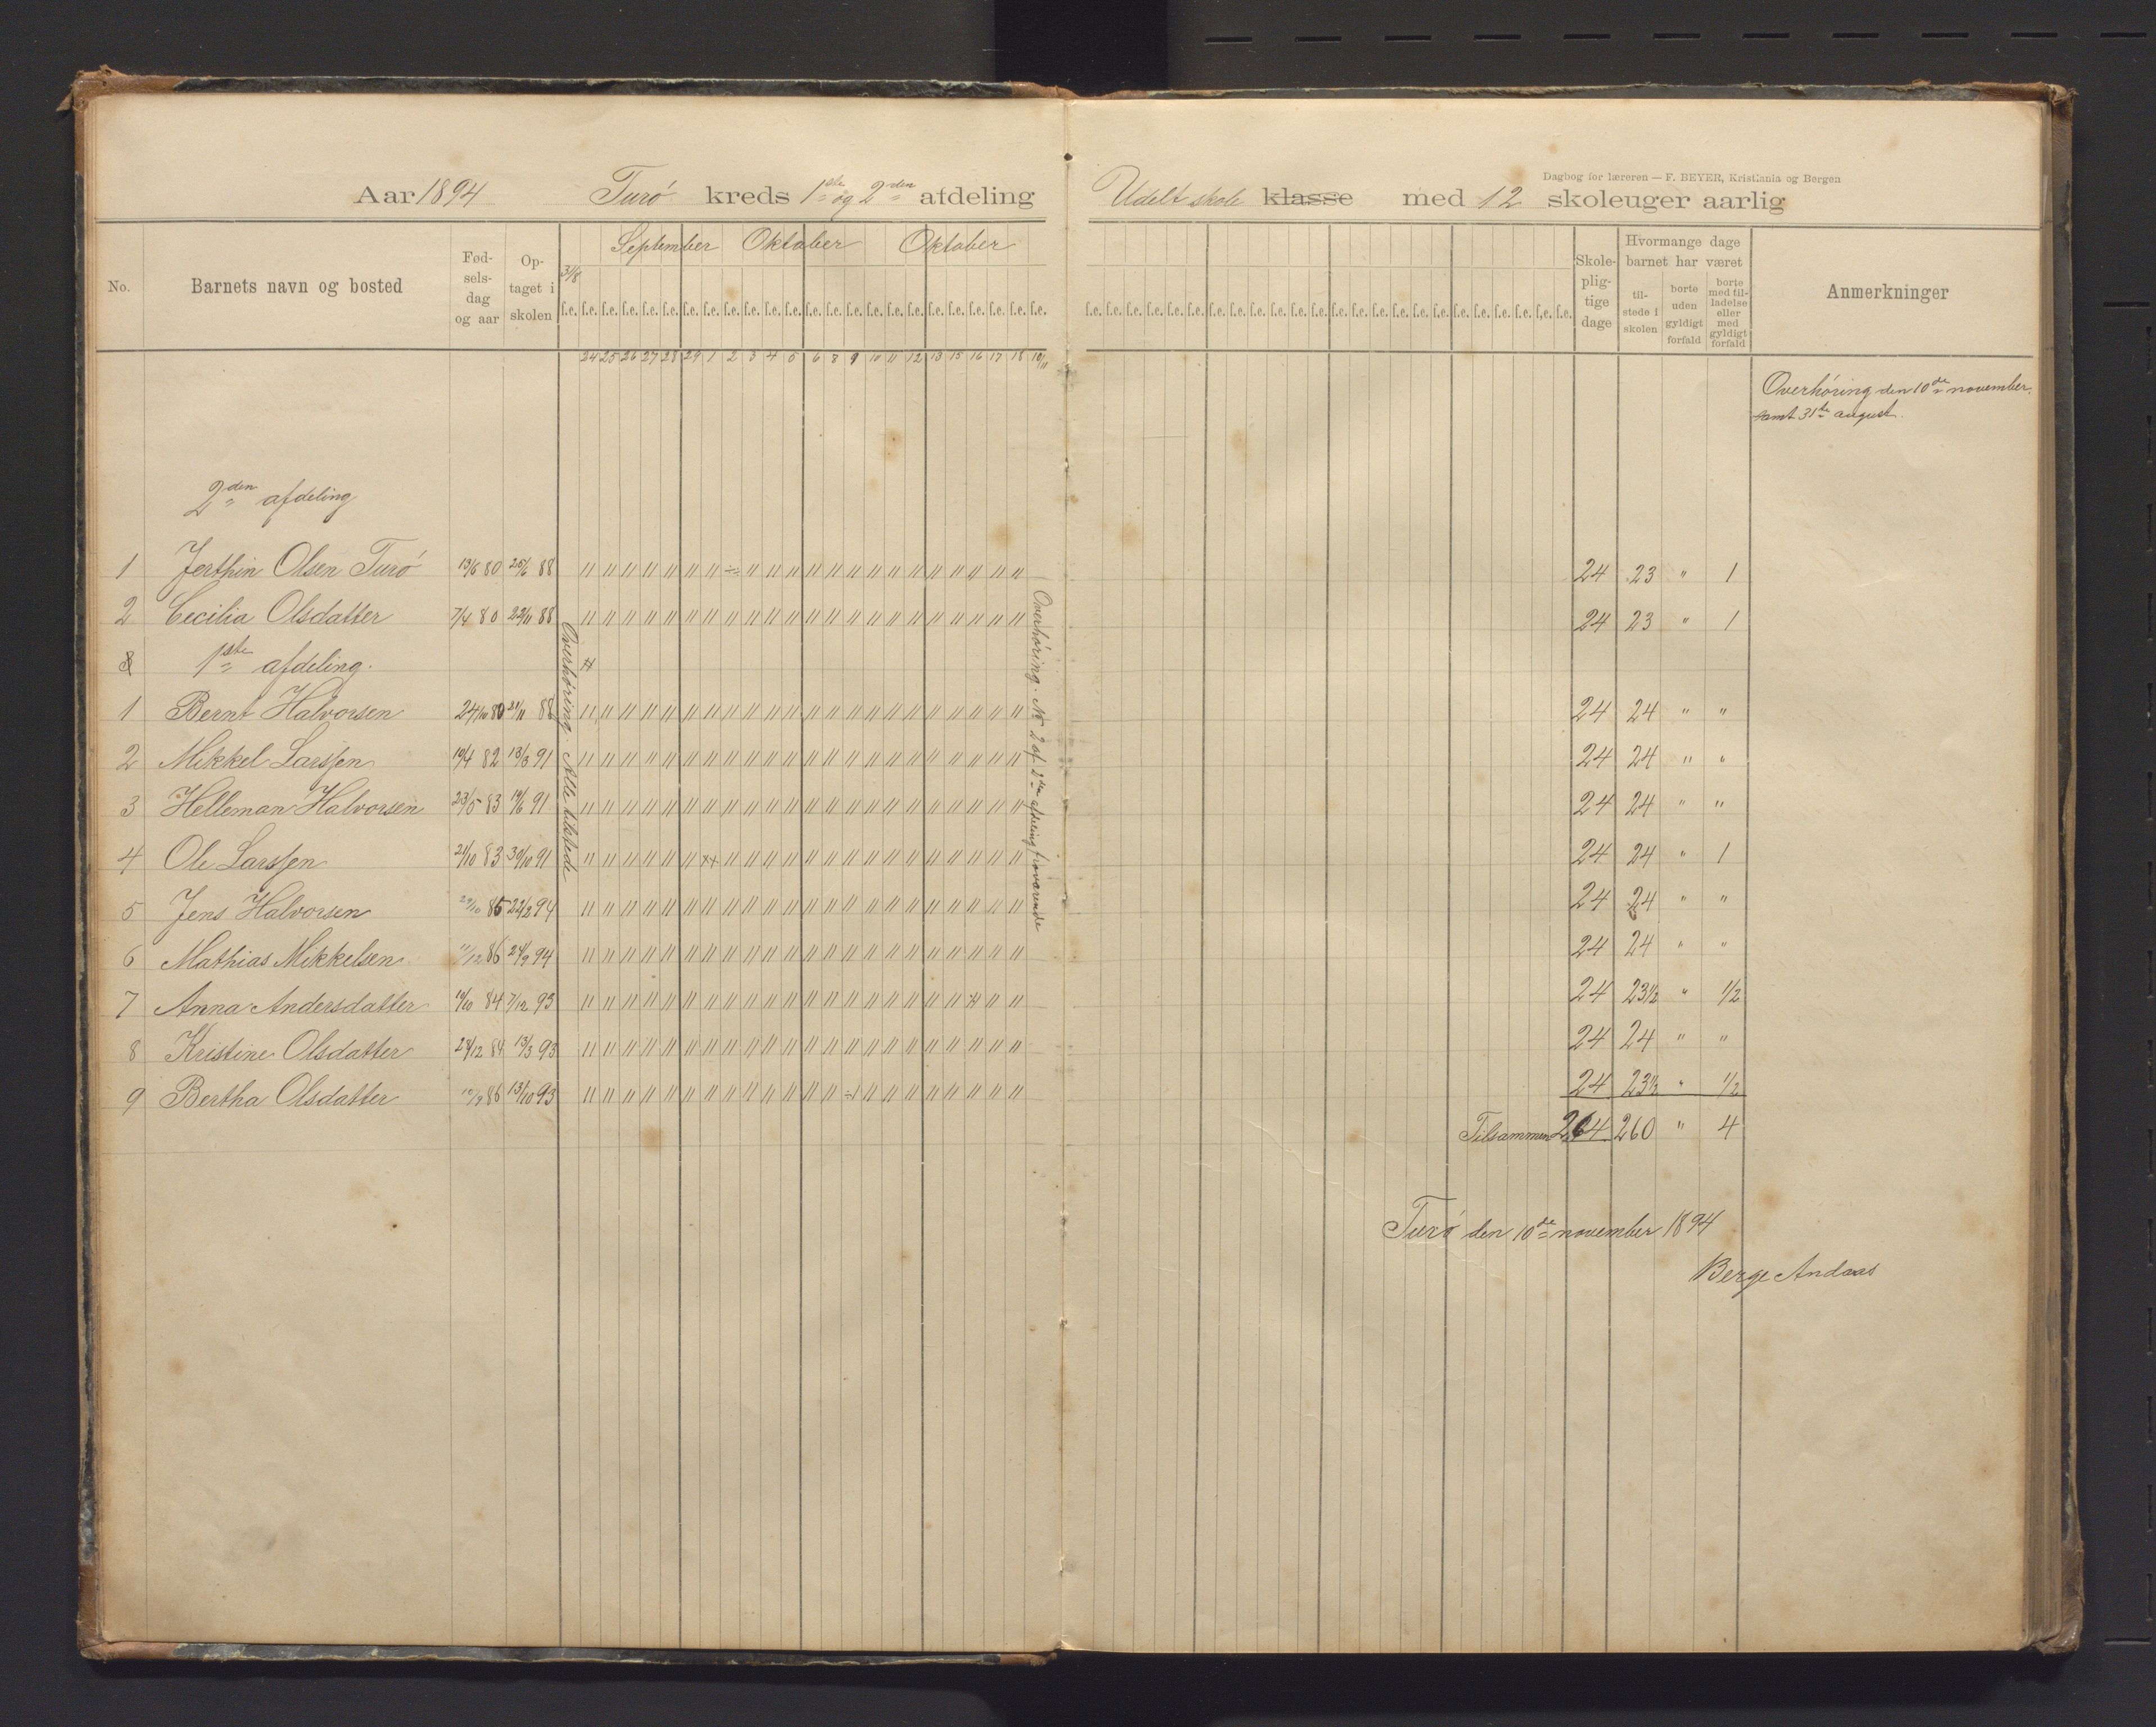 Dagbog for læreren — F. BEYER, Kristiania og Bergen
Aar 1894 Turö kreds 1ste og 2den afdeling Udelt skole klasse med 12 skoleuger aarlig
No. Barnets navn og bosted Fødselsdag og aar Optaget i skolen September Oktober Oktober Skolepligtige dage Hvormange dage barnet har været Anmerkninger
31/8
tilstede i skolen borte uden gyldigt forfald borte med tilladelse eller med gyldigt forfald
f.e. f.e. f.e. f.e. f.e. f.e. f.e. f.e. f.e. f.e. f.e. f.e. f.e. f.e. f.e. f.e. f.e. f.e. f.e. f.e. f.e. f.e. f.e. f.e.
24 25 26 27 28 29 1 2 3 4 5 6 8 9 10 11 12 13 15 16 17 18 10/11
Overhöring den 10de november
samt 31te august.
2den afdeling
1 Jerthin Olsen Turö 13/6 80 25/6 88 24 23 " 1
2 Cecilia Olsdatter 7/4 80 22/11 88 24 23 " 1
1ste afdeling.
1 Bernt Halvorsen 24/10 80 21/11 88 24 24 " "
2 Mikkel Larssen 19/4 82 13/3 91 24 24 " "
3 Helleman Halvorsen 23/5 83 19/6 91 24 24 " "
4 Ole Larssen 21/10 83 30/10 91 24 24 " 1
5 Jens Halvorsen 29/10 85 22/2 94 24 24 " "
6 Mathias Mikkelsen 11/12 86 24/9 94 24 24 " "
7 Anna Andersdatter 19/10 84 7/12 93 24 23 1/2 " 1/2
8 Kristine Olsdatter 24/12 84 13/3 93 24 24 " "
9 Bertha Olsdatter 10/9 86 13/10 93 24 23 1/2 " 1/2
Overhöring. Alle tilstede
Overhöring. No 2 af 2den afdeling fraværende
Tilsammen 264 260 " 4
Turö den 10de november 1894
Berge Andaas